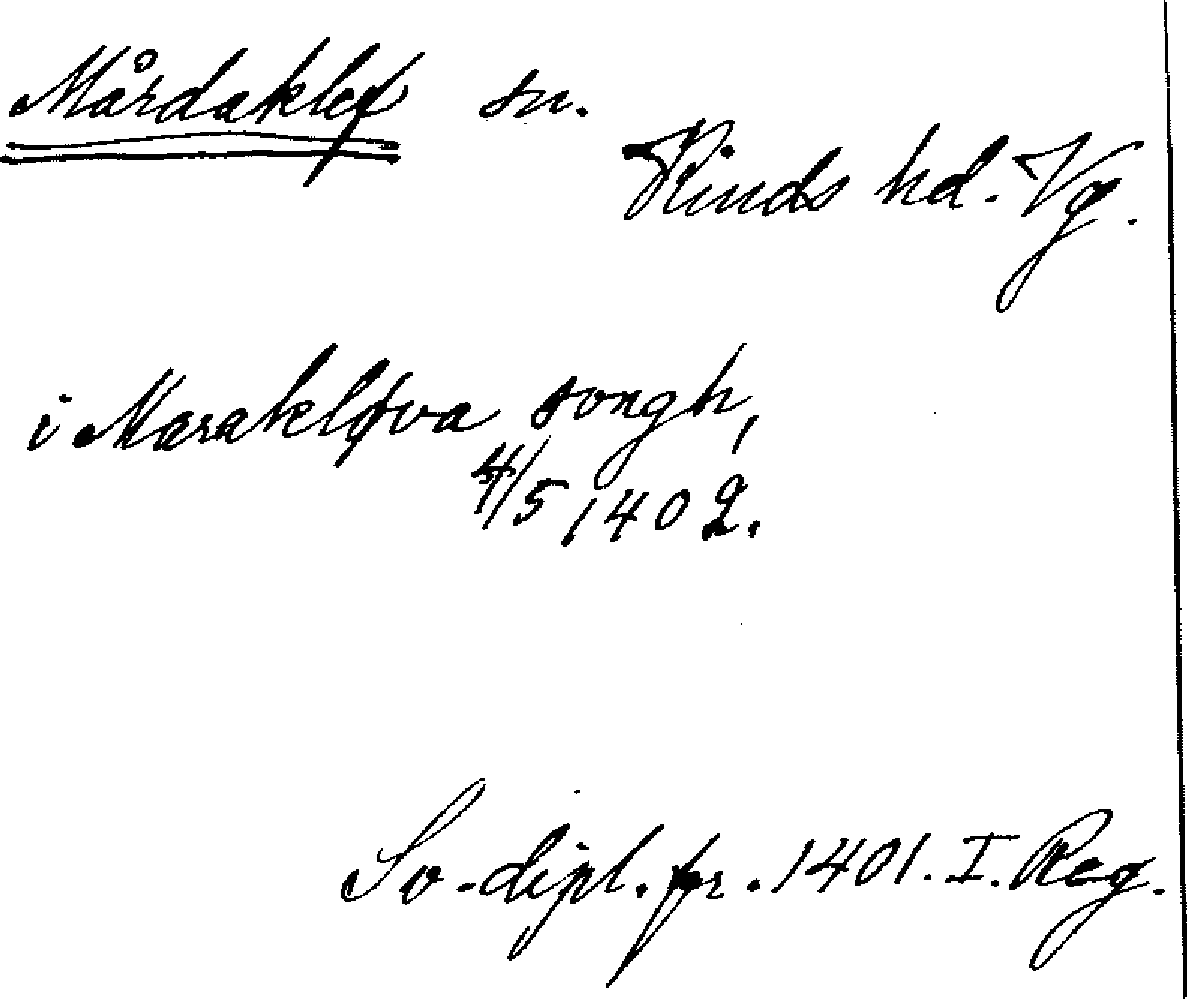 Mårdaklef sn.
Kinds hd. Vg.
i Marakløva songh,
4/5 1402.
Sv. dipl. fr. 1401. I. Reg.